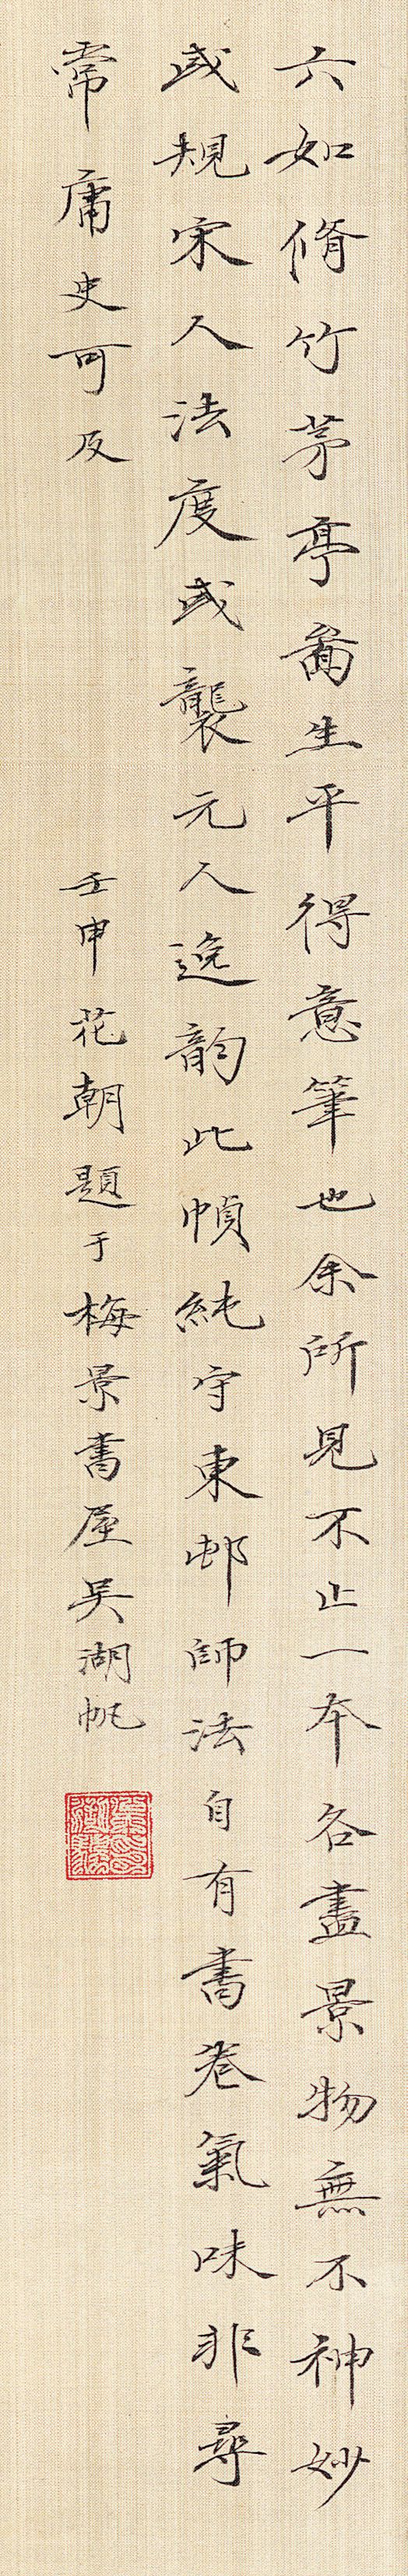 六如脩竹茅亭為生平得意筆也余所見不止一本各盡景物無不神妙
或規宋人法度或襲元人逸韵此幀純守東邨師法自有書卷氣味非尋
常庸史可及
壬申花朝題于梅景書屋吳湖帆